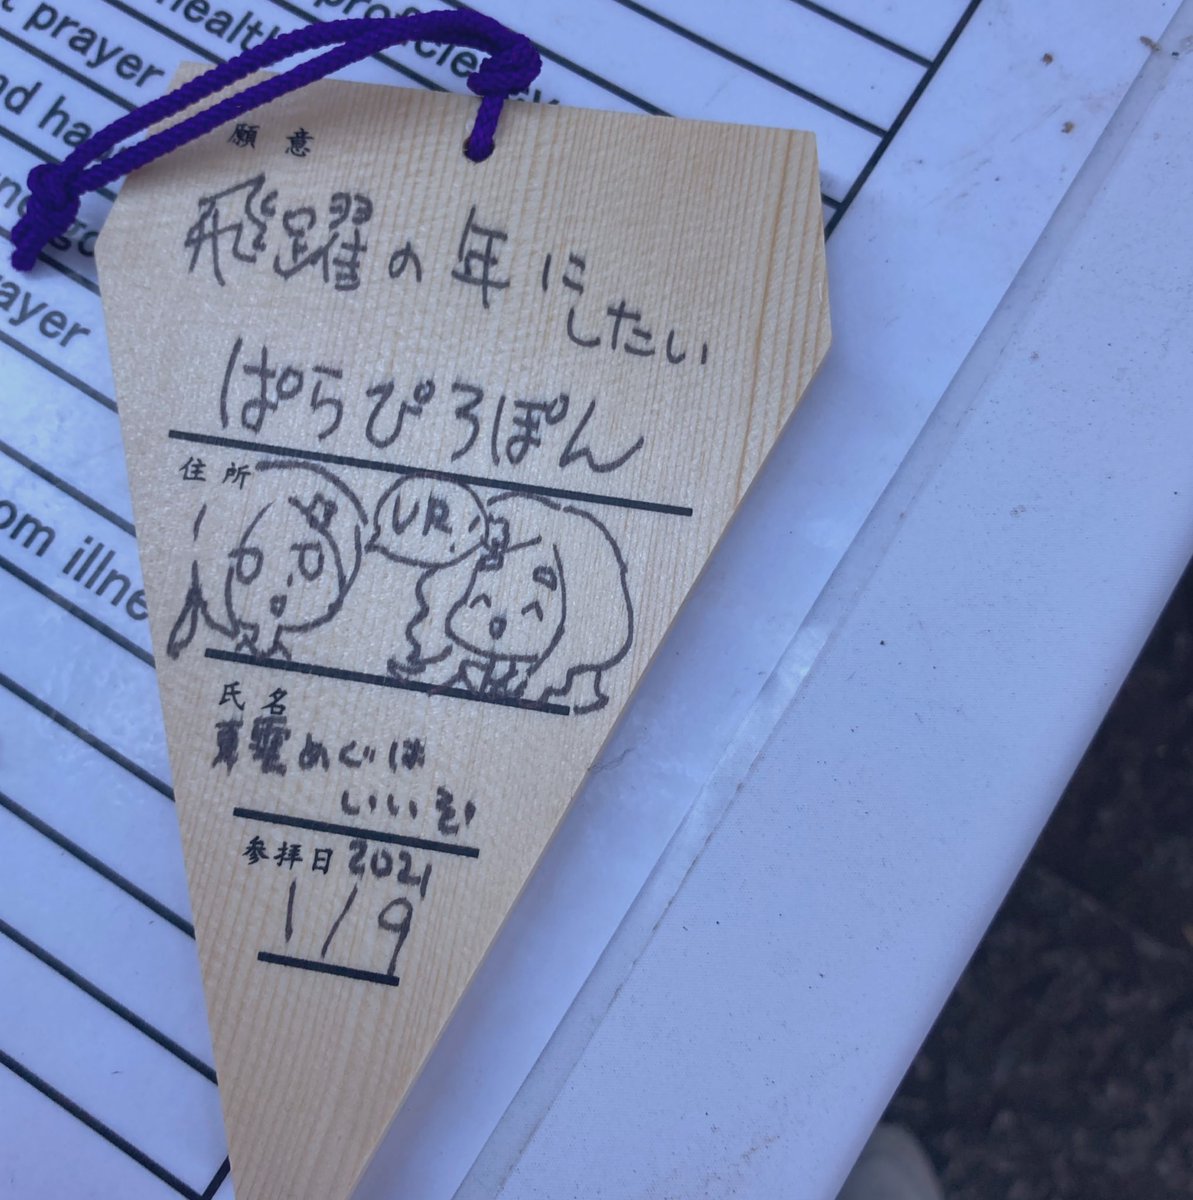 願意
飛躍の年に
したい
ぱらぴろぽん
住所
UR
氏名
東雲めぐは
いいぞ
参拝日 2021
1/9
prayer
health
prof
ayer
om illne